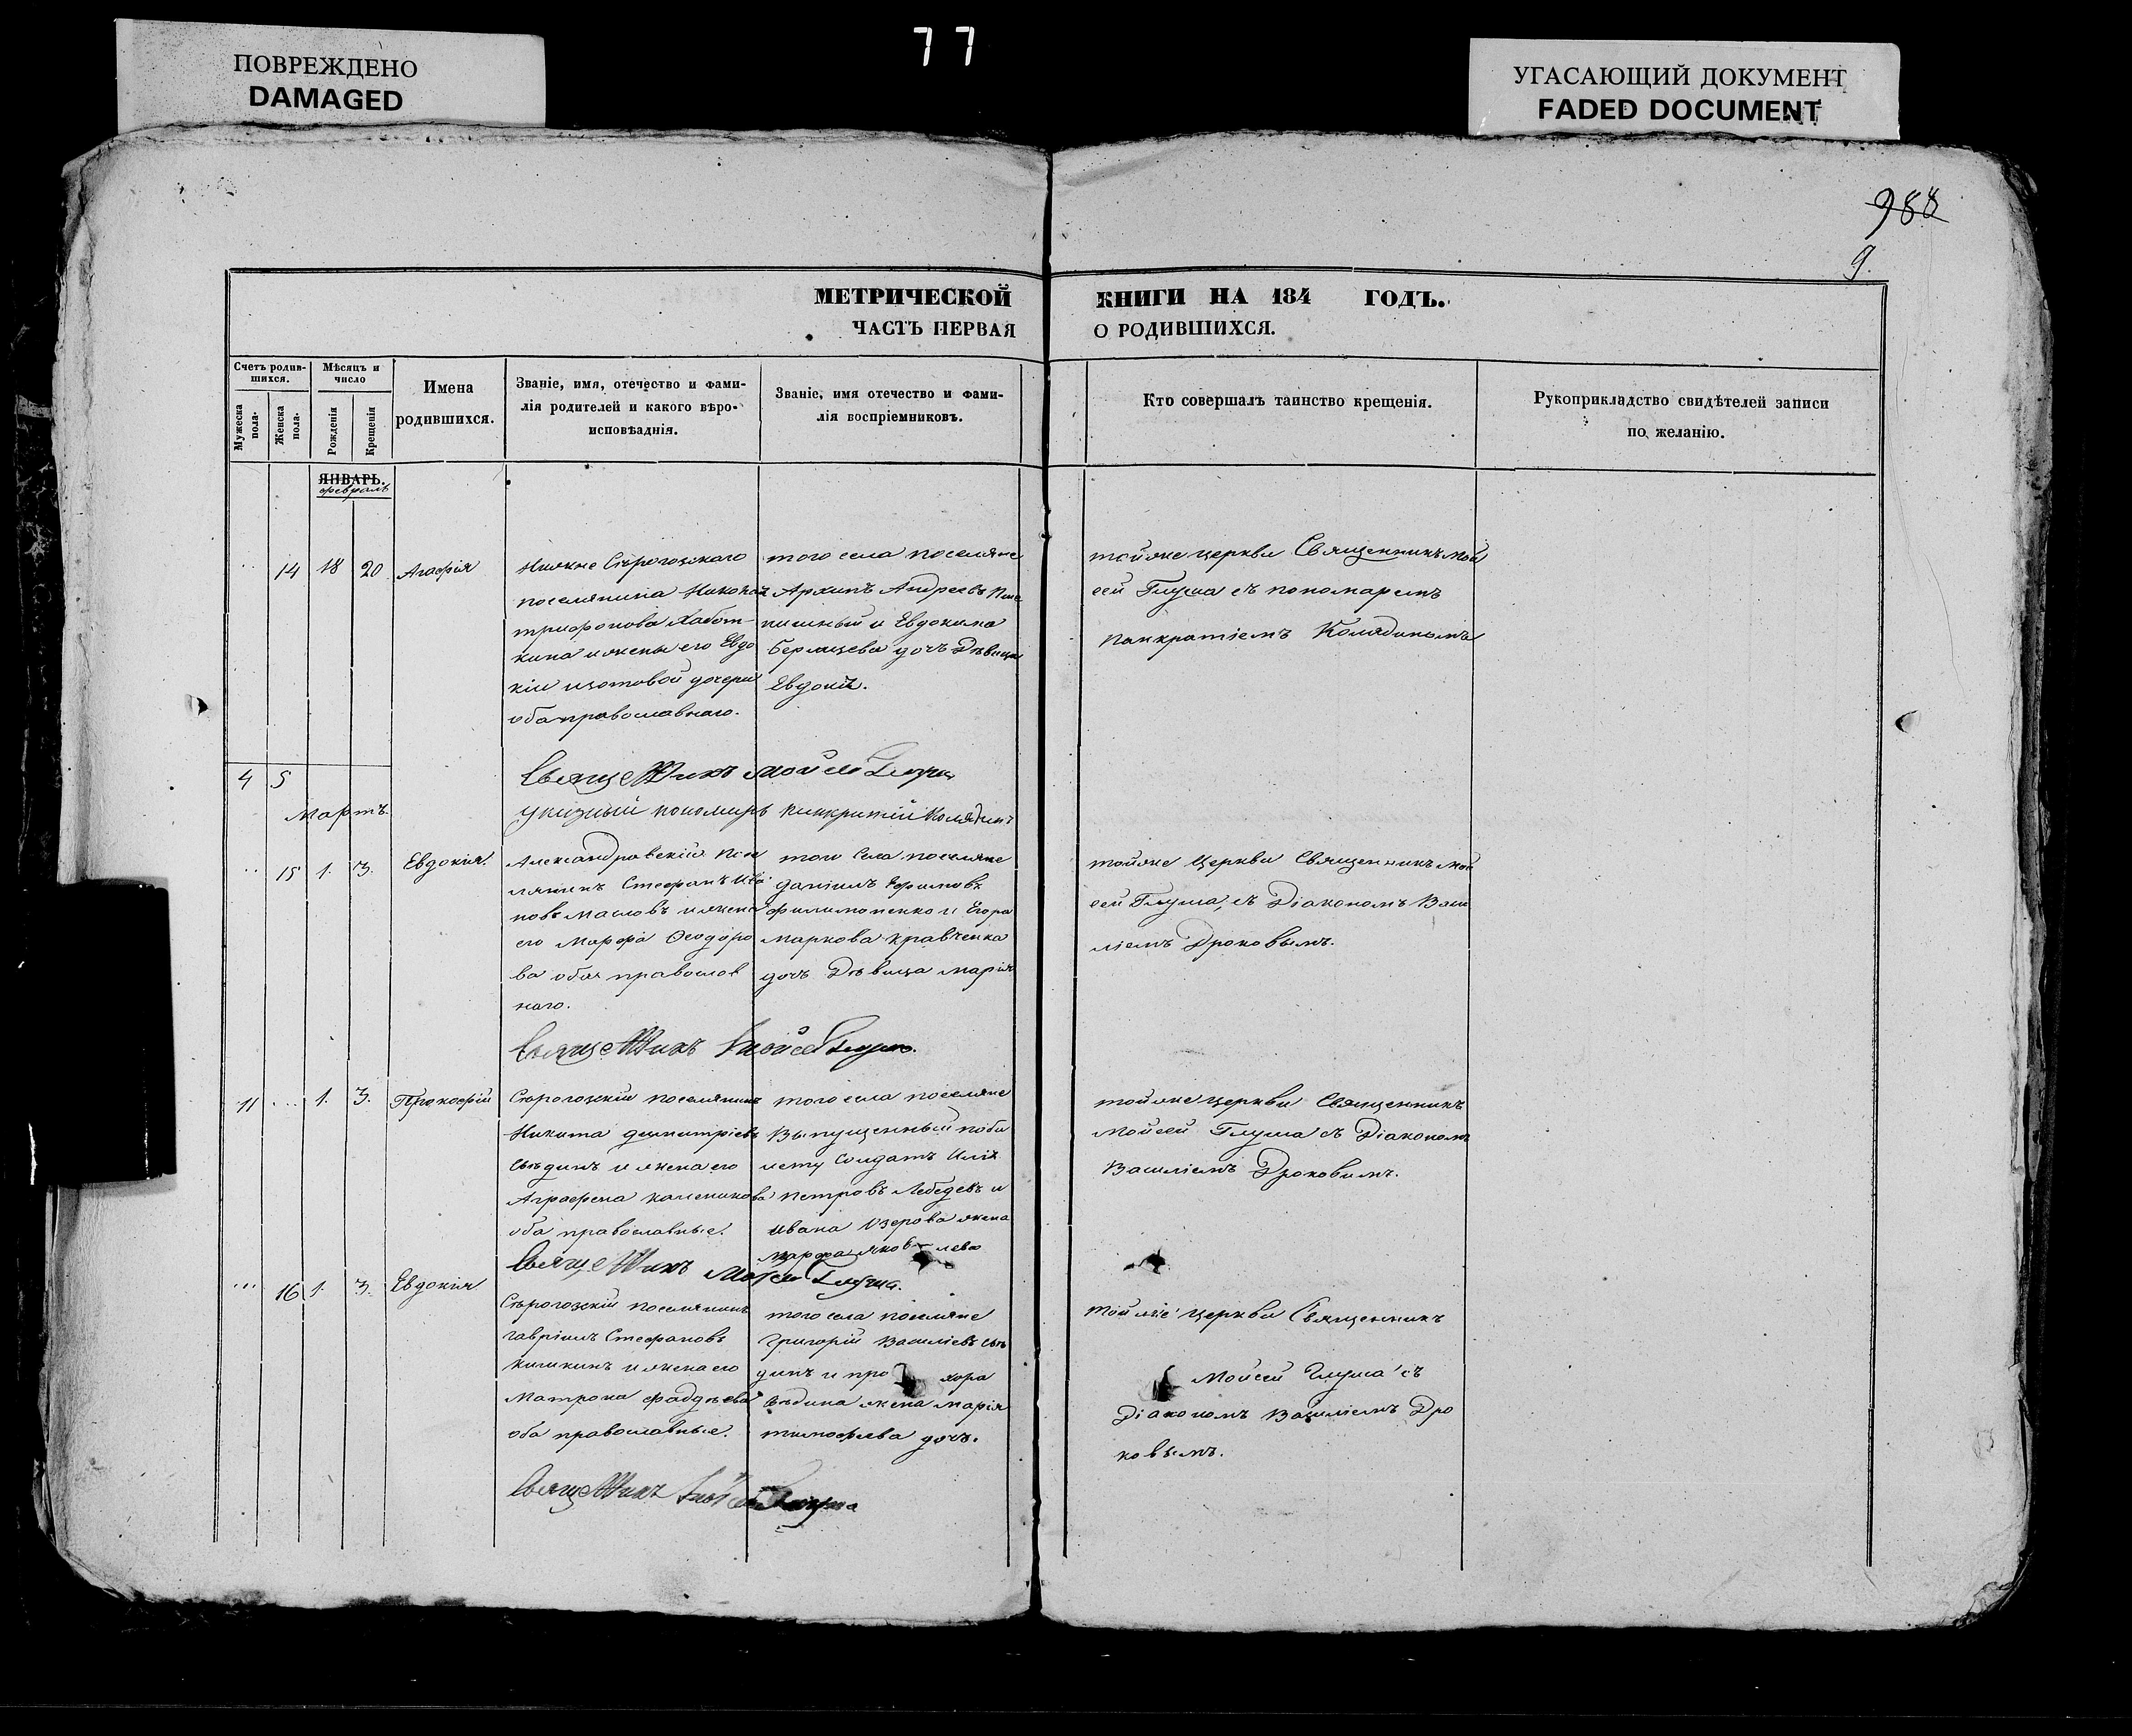 77
ПОВРЕЖДЕНО
DAMAGED
УГАСАЮЩИЙ ДОКУМЕНТ
FADED DOCUMENT
988
9.
МЕТРИЧЕСКОЙ КНИГИ НА 184 ГОДЪ.
ЧАСТЬ ПЕРВАЯ О РОДИВШИХСЯ.
Счетъ родив-
шихся.
Мужеска пола.
Женска пола.
Мѣсяцъ и
число
Рожденія
Крещенія
Имена
родившихся.
Званіе, имя, отечество и фами-
лія родителей и какого вѣро-
исповѣданія.
Званіе, имя отечество и фами-
лія воспріемниковъ.
Кто совершалъ таинство крещенія.
Рукоприкладство свидѣтелей записи
по желанію.
ЯНВАРЬ.
февраль
14 18 20 Агафія
поселянина
трифонова
кина и жены его Евдо
кіи изотовой дочери
оба православнаго.
того села поселяне
Архипъ Андреевъ
и Евдокима
дочь Дѣвица
тойже церкви Священникъ Мои
сей Глуша съ пономаремъ
Панкратіемъ Колядинымъ
4 5
Священникъ Мойсей Глуша
указный пономарь Панкратій Колядинъ
Мартъ
15 1. 3. Евдокія.
Александровскій посе
лянинъ Стефанъ Ива
новъ Масловъ и жена
его Марфа Феодоро
ва обоя православ
наго.
того Села поселяне
Даніилъ Ефимовъ
Филимоненко и Егора
Маркова Кравченка
дочь Дѣвица Марія
тойже Церкви Священникъ Мои
сей Глуша, съ Діакономъ Васи
ліемъ Дроковымъ.
Священникъ Мойсей Глуша.
11 1. 3. Прокофій
Сѣрогозскій поселянинъ
Никита Димитріевъ
Сѣдинъ и жена его
Аграфена
оба православные.
того села поселяне
Выпущенный поби
лету Солдатъ Илія
Петровъ Лебедевъ и
Ивана Озерова жена
Марфа Яковлева
тойже церкви Священникъ
Мойсей Глуша съ Діакономъ
Василіемъ Дроковымъ.
Священникъ Мойсей Глуша.
16 1. 3. Евдокія
Сѣрогозскій поселянинъ
Гавріилъ Стефановъ
и жена его
Матрона Фаддѣева
оба православные.
того села поселяне
Григорій Василіевъ Сѣ
динъ и Про хора
Сѣдина жена Марія
Тимофеева дочь.
тойже церкви Священникъ
Мойсей Глуша съ
Діакономъ Василіемъ Дро
ковымъ.
Священникъ Мойсей Глуша